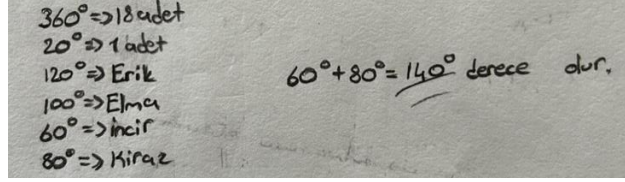 360°=>18 adet
20°=> 1 adet
120°=> Erik
100°=> Elma
60°=> incir
80°=> Kiraz
60°+80°= 140° derece dur.